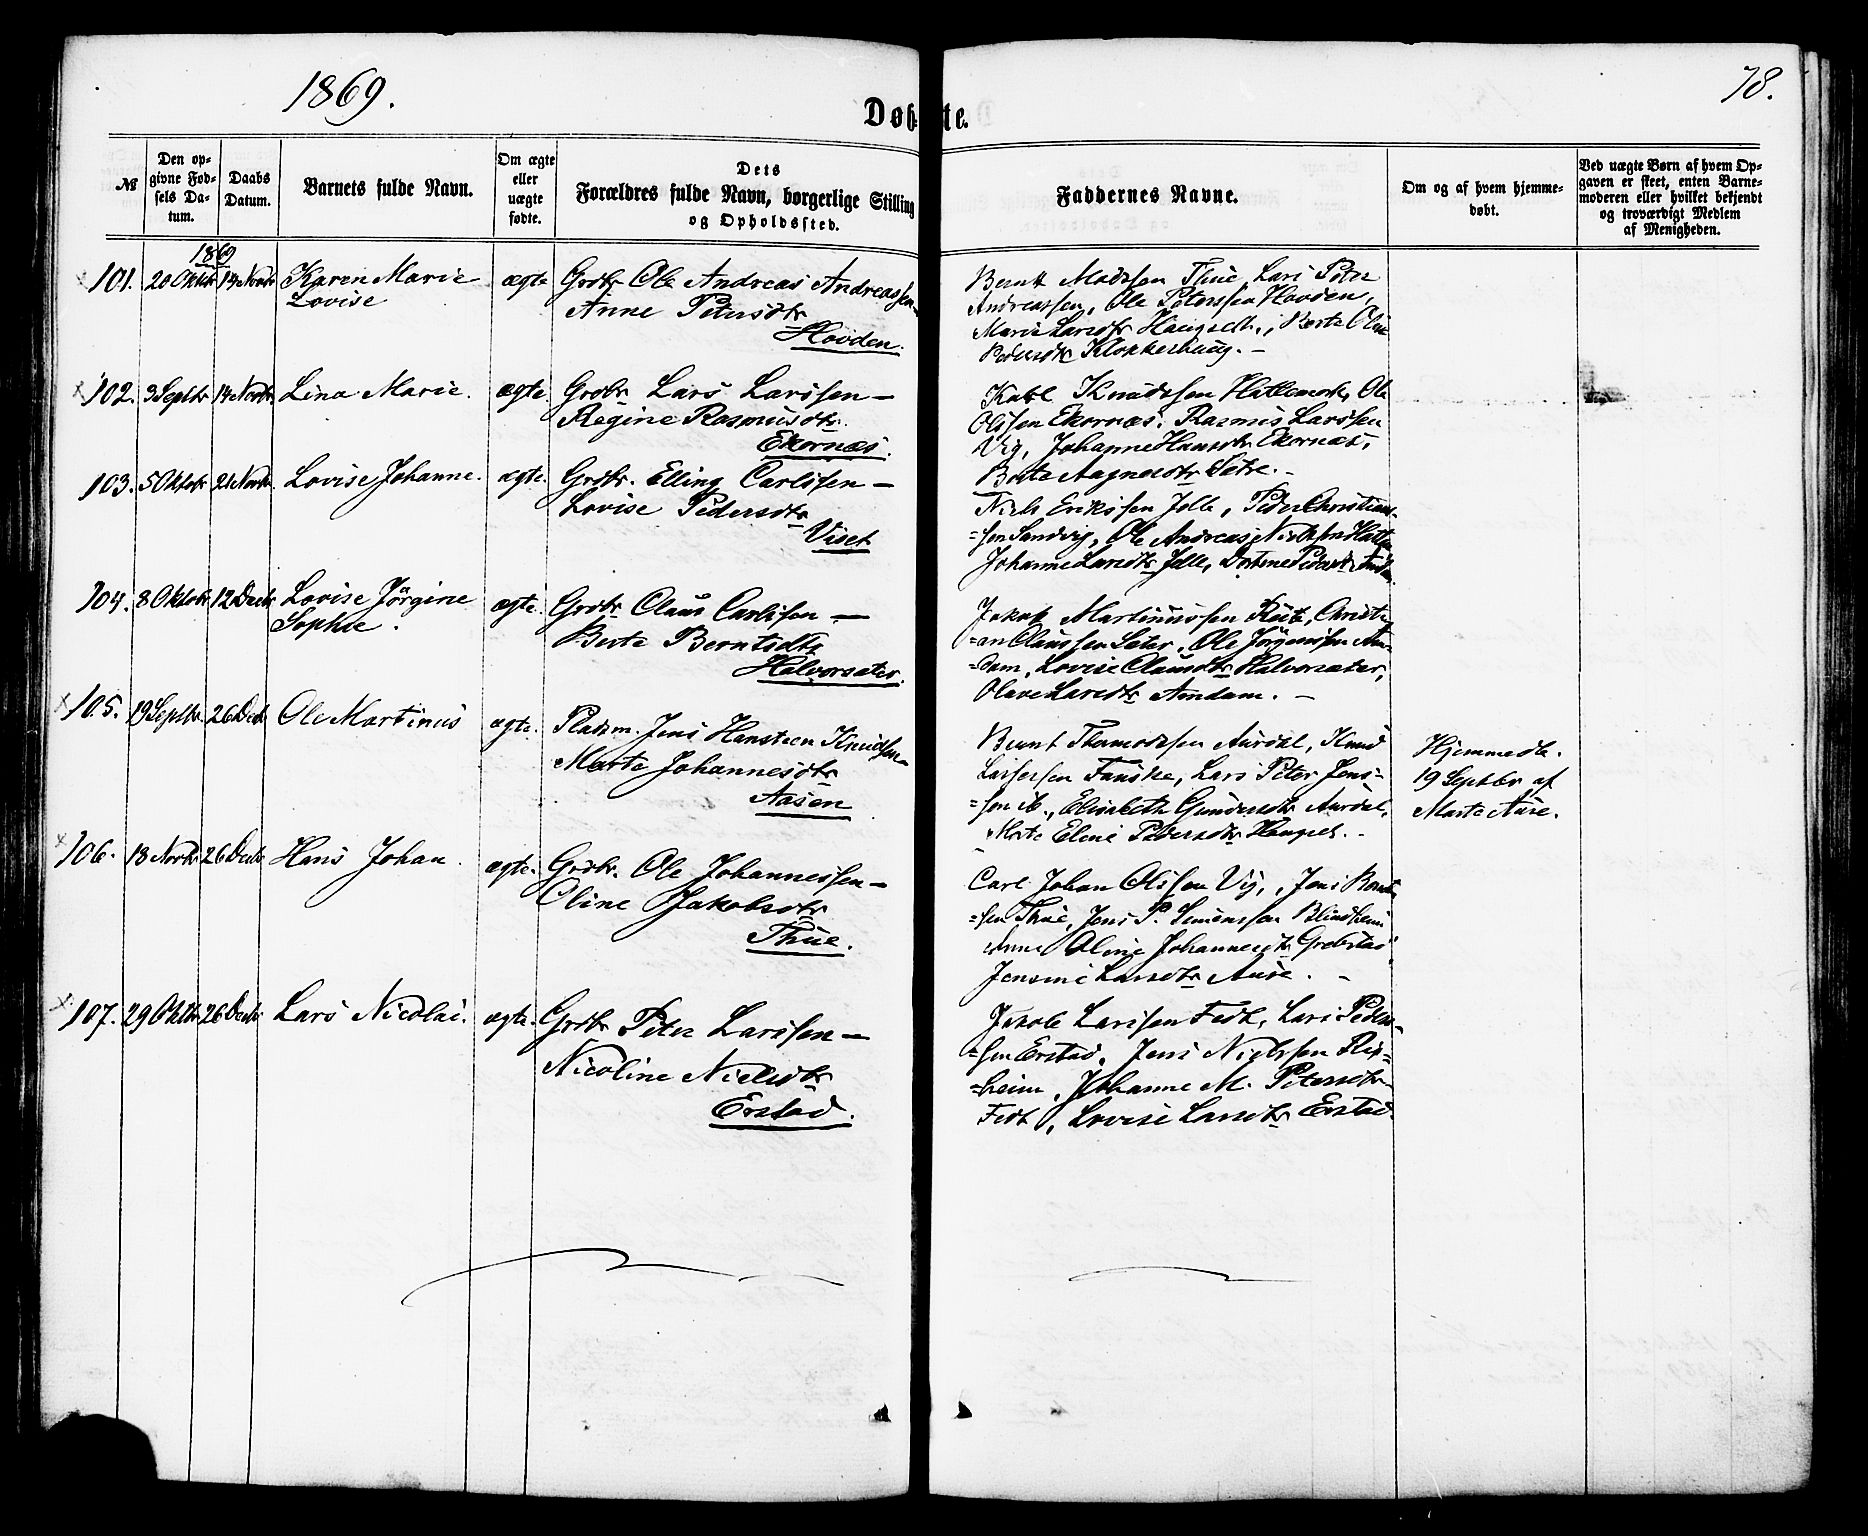 1869.
78.
Døbte.
№
Den opgivne Fødsels Datum.
Daabs Datum.
Barnets fulde Navn.
Om ægte eller uægte fødte.
Dets Forældres fulde Navn, borgerlige Stilling og Opholdssted.
Faddernes Navne.
Om og af hvem hjemmedøbt.
Ved uægte Børn af hvem Opgaven er skeet, enten Barnemoderen eller hvilket bekjendt og troværdigt Medlem af Menigheden.
1869
101. 20 Oktbr 14 Novbr Karen Marie ægte Grdbr Ole Andreas Andreassen
Lovise Anne Petersdtr
Hovden.
Bernt Madssen Thue, Lars Peter
Andreassen, Ole Peterssen Hovden,
Marie Larsdtr Haugseth, Berte Oline
Pedersdtr Klokkerhaug. –
102. 3 Septbr 14 Novbr. Lina Marie. ægte. Grdbr Lars Larssen –
Regine Rasmusdtr.
Ekornæs.
Knudssen Hattemork, Ole
Olssen Ekornæs, Rasmus Larssen
Vig, Johanne Hansdtr Ekornæs,
Berte Aagesdtr Sætre. –
103. 5 Oktobr 21 Novbr. Lovise Johanne. ægte. Grdbr. Elling Carlssen –
Lovise Pedersdtr
Viset
Niels Erikssen Jølle, Peder Christians-
=sen Sandvig, Ole Andreas Nielssen
Johanne Larsdtr Jølle,
104. 8 Oktobr 12 Decbr Lovise Jörgine ægte. Grdbr Claus Carlssen –
Sophie. Berte Berntsdtr
Halvorsæter.
Jakob Martinussen Christi-
=an Claussen Sæter, Ole Jörgenssen Am-
=dam, Lovise Clausdtr Halvorsæter,
Olave Larsdtr Amdam. –
105. 19 Septbr. 26 Decbr Ole Martinus ægte. Pladsm. Jens Hansteen Knudsen
Marte Johannesdtr
Aasen
Bernt Thomassen Aurdal, Knud
Lassessen Fauske, Lars Peter Jens-
=sen ib., Elisabeth Gundersdtr Aurdal,
Marte Eline Pedersdtr Haugset. –
Hjemmedbt.
19 Septbr af
Marte Aure.
106. 18 Novbr 26 Decbr Hans Johan. ægte. Grdbr. Ole Johannessen –
Oline Jakobsdtr
Thue.
Carl Johan Olssen Vig, Jens Bernt-
=sen Thue, Jens P. Simonssen Blindheim
Anne Oline Johannesdtr Grebstad,
Jensine Larsdtr Aure. –
107. 29 Oktbr 26 Decbr. Lars Nicolai. ægte. Grdbr Peter Larssen –
Nicoline Nielsdtr
Erstad.
Jakob Larssen Fedt, Lars Peders-
=sen Erstad, Jens Nielssen Ris-
=heim, Johanne M. Petersdtr
Fedt, Lovise Larsdtr Erstad.